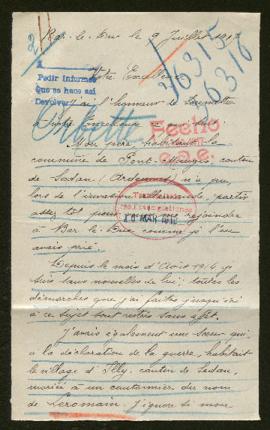 Bar-le-Duc le 9 Juillet 191
A
Pedir Informes
Que se hace así
Devolver
36315
36316
Votre Excellence
J'ai l'honneur de soumettre
à Votre Excellence
Orbette
Fecho
Mon père, habitant la
commune de Pont-Maugis, canton
de Sedan (Ardennes) n'a pu,
lors de l'invasion allemande, partir
assez tôt pour me rejoindre
à Bar le Duc comme je l'en
avais prié.
Depuis le mois d'Août 1914 je
suis sans nouvelles de lui; toutes les
démarches que j'ai faites jusqu'ici
à ce sujet sont restées sans effet.
J'avais également une sœur qui
à la déclaration de la guerre, habitait
le village d'Illy, canton de Sedan,
mariée à un cantonnier du nom
de Leromain. J'ignore de même